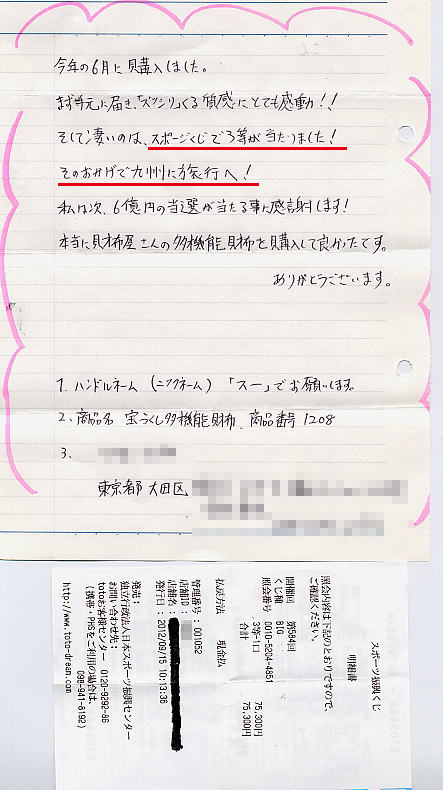 今年の6月に購入しました。
まず手元に届き、「ズッシリ」くる質感にとても感動!!
そして凄いのは、スポーツくじで3等が当たりました!
そのおかげで九州に旅行へ!
私は次、6億円の当選が当たる事に感謝します!
本当に財布屋さんの多機能財布を購入して良かったです。
ありがとうございます。
1. ハンドルネーム (ニックネーム) 「スー」でお願いします。
2. 商品名 宝くじ多機能財布、商品番号 1208
3.
東京都 大田区
スポーツ振興くじ
明細書
照会内容は下記のとおりですので、
ご確認ください。
開催回 第584回
くじ種 BIG
照会番号 0010-5204-4851
3等-1口 75,300円
合計 75,300円
払戻方法 現金払
管理番号 : 001052
店舗ID :
店舗名 :
発行日 : 2012/09/15 10:13:36
発売:
独立行政法人日本スポーツ振興センター
お問い合わせ先:
totoお客様センター 0120-9292-86
(携帯・PHSをご利用の場合は、
098-941-8192)
http://www.toto-dream.com/